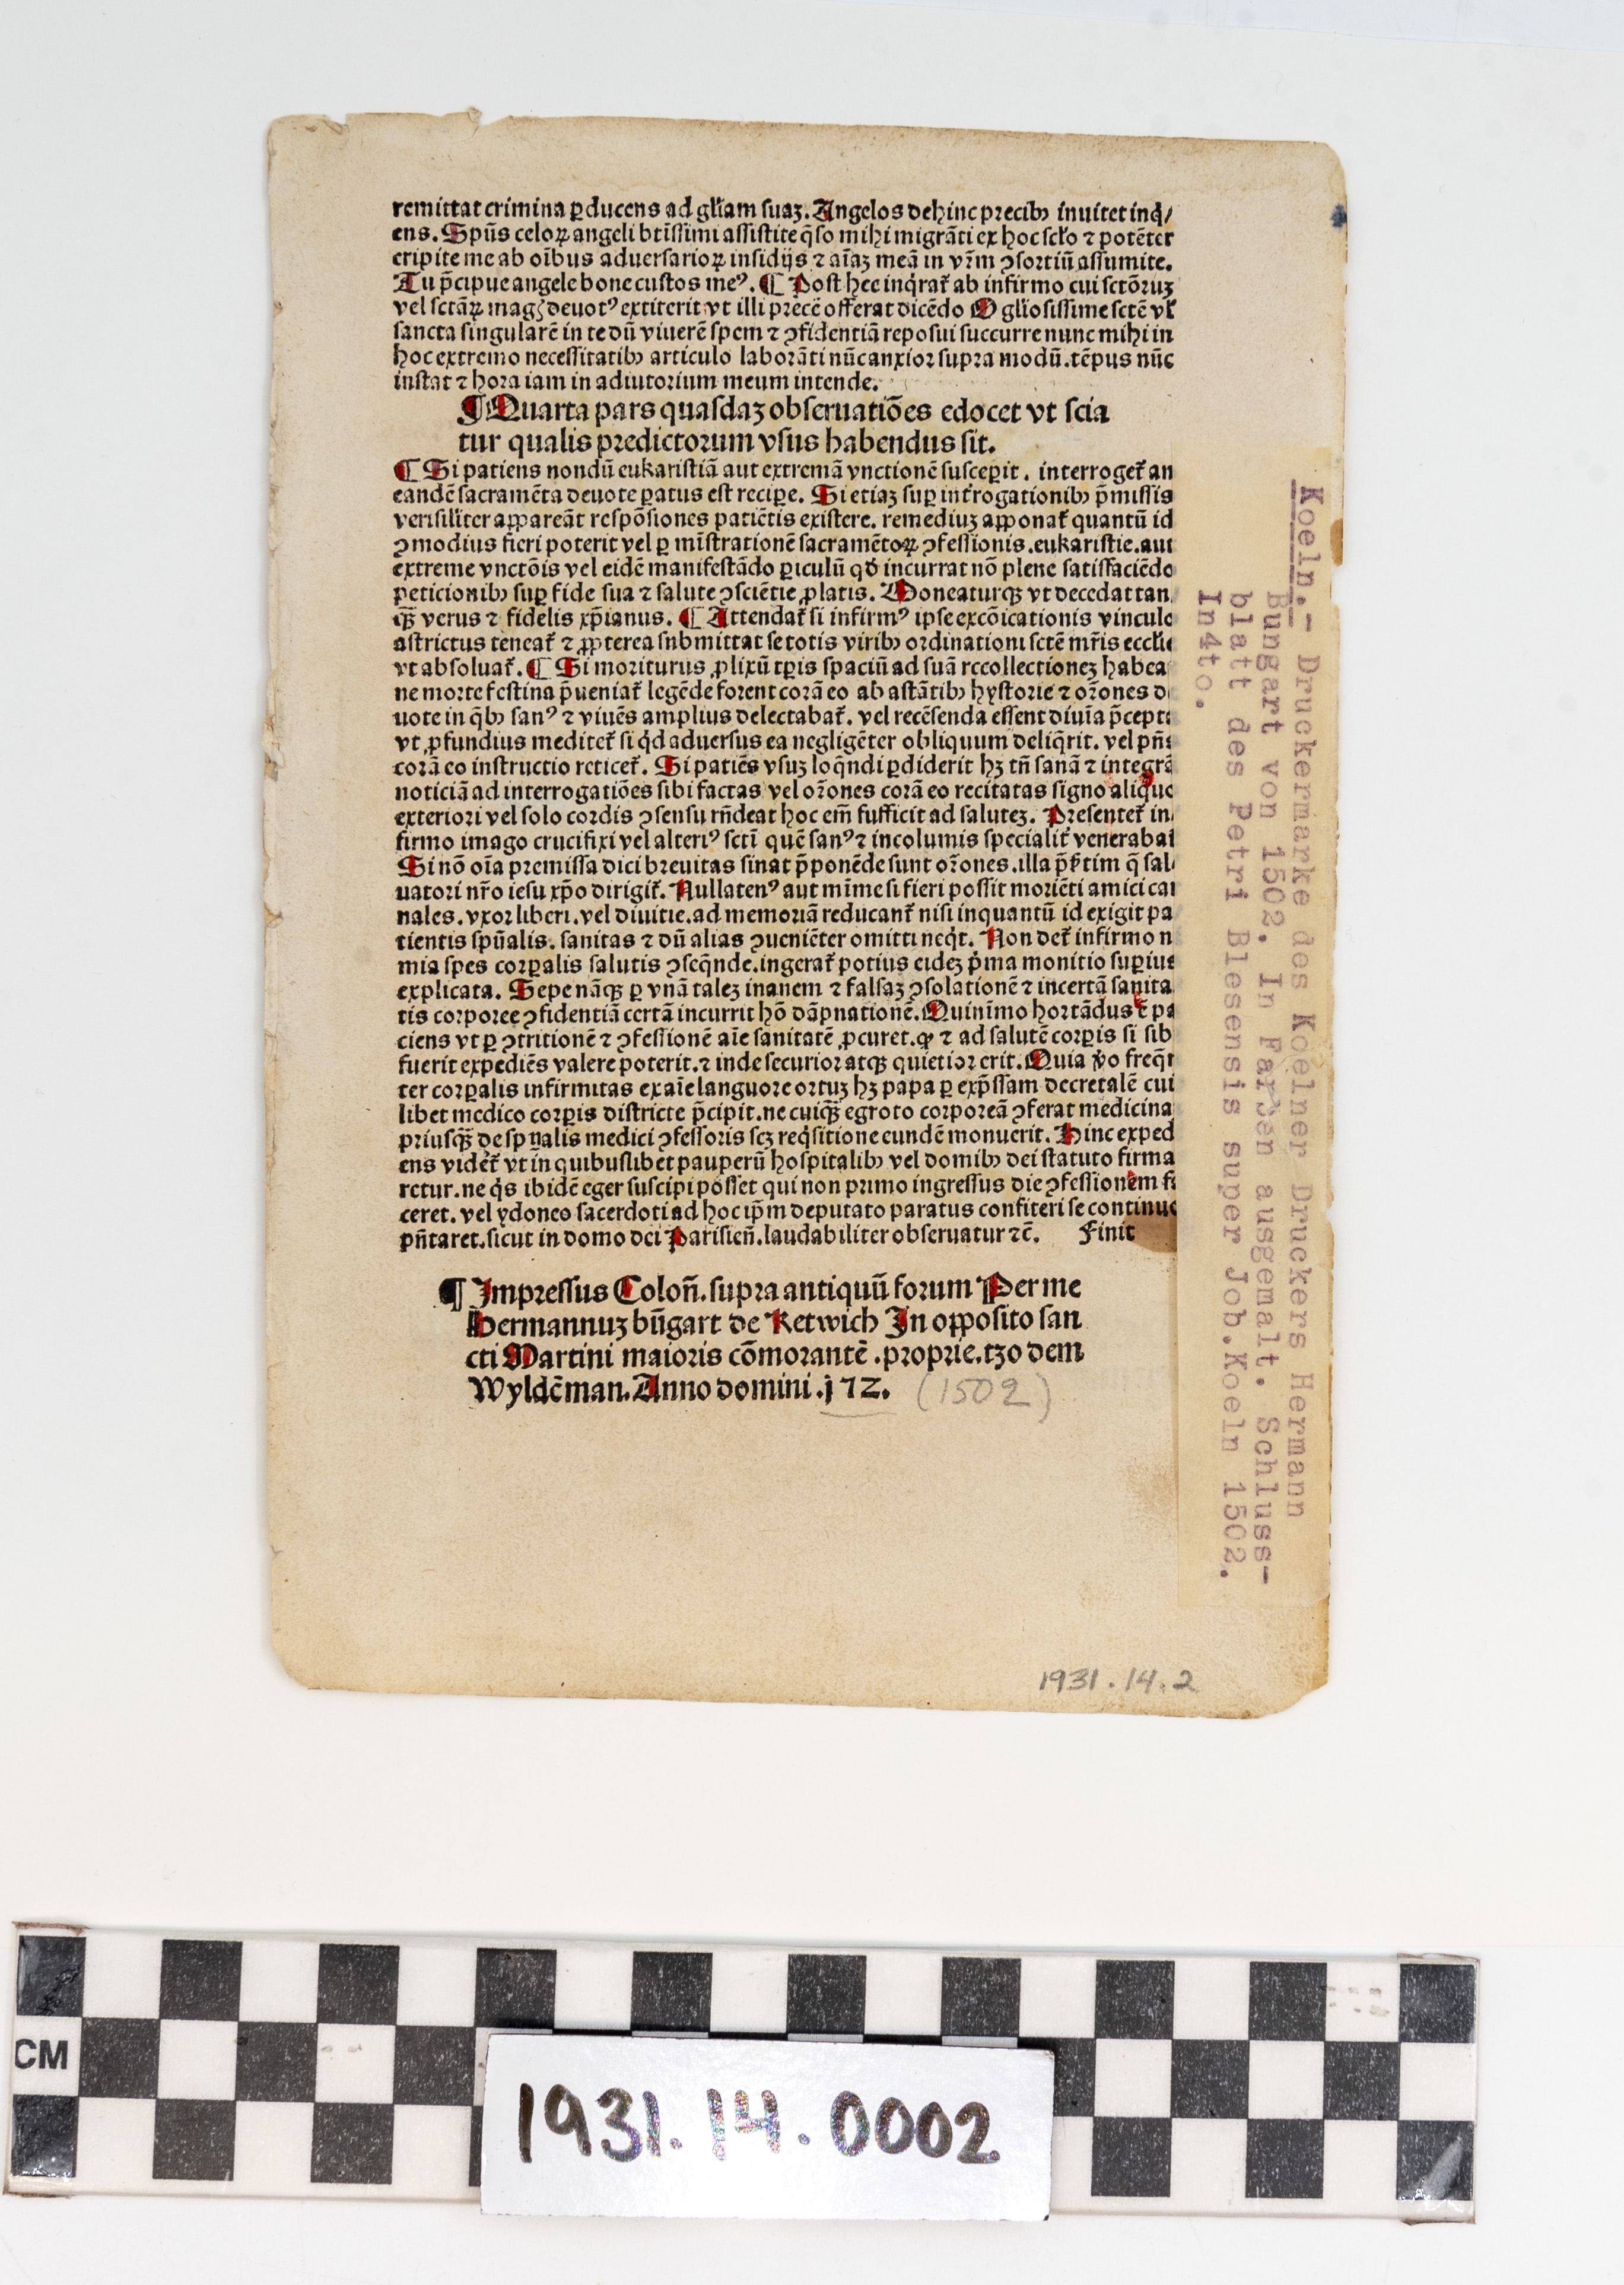 remittat crimina ꝑducens ad gl̃iam suaꝫ. Angelos dehinc precibꝰ inuitet inq̃/
ens. Spũs celoꝝ angeli btĩssimi assistite q̃so mihi migrãti ex hoc sc̃lo ⁊ potẽter
eripite me ab oĩbus aduersarioꝝ insidijs ⁊ aĩaꝫ meã in vr̃m ꝯsortiũ assumite.
Tu p̃cipue angele bone custos meꝰ. ¶ Post hec inq̃rat̃ ab infirmo cui sctõruꝫ
vel sctãꝝ magꝭ deuotꝰ extiterit vt illi precẽ offerat dicẽdo O gl̃iosissime sctẽ vl̃
sancta singularẽ in te dũ viuerẽ spem ⁊ ꝯfidentiã reposui succurre nunc mihi in
hoc extremo necessitatibꝰ articulo laborãti nũc anxior supra modũ. tẽpus nũc
instat ⁊ hora iam in adiutorium meum intende.
¶ Quarta pars quasdaꝫ obseruatiões edocet vt scia
tur qualis predictorum vsus habendus sit.
¶ Si patiens nondũ eukaristiã aut extremã vnctionẽ susceꝑit. interroget̃ an
eandẽ sacramẽta deuote ꝑatus est reciꝑe. Si etiaꝫ suꝑ int̃rogationibꝰ p̃missis
verisilĩter aꝑpareãt respõsiones patiẽtis existere. remediuꝫ apponat̃ quantũ id
ꝯmodius fieri poterit vel ꝑ mĩstrationẽ sacramẽtoꝝ ꝯfessionis. eukaristie. aut
extreme vnctõis vel eidẽ manifestãdo ꝑiculũ qđ incurrat nõ plene satisfaciẽdo
peticionibꝰ suꝑ fide sua ⁊ salute ꝯsciẽtie ꝓlatis. Moneaturqꝫ vt decedat tan
qꝫ̃ verus ⁊ fidelis xp̃ianus. ¶ Attendat̃ si infirmꝰ ipse excõicationis vinculo
astrictus teneat̃ ⁊ ꝓpterea snbmittat se totis viribꝰ ordinationi sctẽ mr̃is eccl̃ie
vt absoluat̃. ¶ Si moriturus ꝓlixũ tꝑis spaciũ ad suã recollectioneꝫ habea
ne morte festina p̃ueniat̃ legẽde forent corã eo ab astãtibꝰ hystorie ⁊ or̃ones d
uote in q̃bꝰ sanꝰ ⁊ viuẽs amplius delectabat̃. vel recẽsenda essent diuĩa p̃cept
vt ꝓfundius meditet̃ si q̃d aduersus ea negligẽter obliquum deliq̃rit. vel pñs
corã eo instructio reticet̃. Si patiẽs vsuꝫ loq̃ndi ꝑdiderit hꝫ tñ sanã ⁊ integrã
noticiã ad interrogatiões sibi factas vel or̃ones corã eo recitatas signo aliquo
exteriori vel solo cordis ꝯsensu rñdeat hoc em̃ fufficit ad saluteꝫ. Presentet̃ in
firmo imago crucifixi vel alteriꝰ sctĩ quẽ sanꝰ ⁊ incolumis specialit̃ venerabat
Si nõ oĩa premissa dici breuitas sinat p̃ponẽde sunt or̃ones. illa p̃s̃tim q̃ sal
uatori nr̃o iesu xp̃o dirigit̃. Nullatenꝰ aut mĩme si fieri possit moriẽti amici car
nales. vxor liberi. vel diuitie. ad memoriã reducant̃ nisi inquantũ id exigit pa
tientis spũalis. sanitas ⁊ dũ alias ꝯueniẽter omitti neq̃t. Non det̃ infirmo n
mia spes corꝑalis salutis ꝯseq̃nde. ingerat̃ potius eideꝫ p̃ma monitio suꝑius
explicata. Sepe nãqꝫ ꝑ vnã taleꝫ inanem ⁊ falsaꝫ ꝯsolationẽ ⁊ incertã sanita
tis corporee ꝯfidentiã certã incurrit hõ dãpnationẽ. Quinĩmo hortãdus ẽ pa
ciens vt ꝑ ꝯtritionẽ ⁊ ꝯfessionẽ aĩe sanitatẽ ꝓcuret. qꝛ ⁊ ad salutẽ corꝑis si sib
fuerit expediẽs valere poterit. ⁊ inde securior atqꝫ quietior erit. Quia v̾o freq̃t
ter corꝑalis infirmitas ex aĩe languore ortuꝫ hꝫ papa ꝑ exp̃ssam decretalẽ cui
libet medico corꝑis districte p̃cipit. ne cuiqꝫ̃ egroto corporeã ꝯferat medicina
priusqꝫ̃ de spũalis medici ꝯfessoris scꝫ req̃sitione eundẽ monuerit. Hinc exped
ens videt̃ vt in quibuslibet pauperũ hospitalibꝰ vel domibꝰ dei statuto firma
retur. ne q̃s ibidẽ eger suscipi posset qui non primo ingressus die ꝯfessionem fa
ceret. vel ydoneo sacerdoti ad hoc ip̃m deputato paratus confiteri se continuo
pñtaret. sicut in domo dei Parisieñ. laudabiliter obseruatur ⁊c̃. Finit
¶ Impressus Coloñ. supra antiquũ forum Per me
Hermannuꝫ bũgart de Ketwich In opposito san
cti Martini maioris cõmorantẽ. proprie. tzo dem
Wyldẽman. Anno domini. j 72. (1502)
1931.14.2
Koeln.- Druckermarke des Koelner Druckers Hermann
Bungart von 1502. In Farben ausgemalt. Schluss-
blatt des Petri Blesensis super Job. Koeln 1502.
In4to.
CM
1931.14.0002